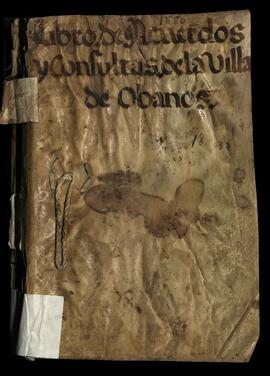 1580
Libro, de Acuerdos
y Consultas, de la Villa
de Obanos.